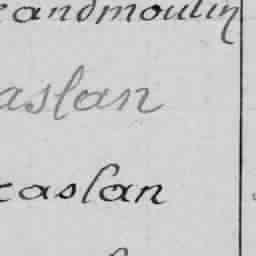 randmoulin
aslan
caslan